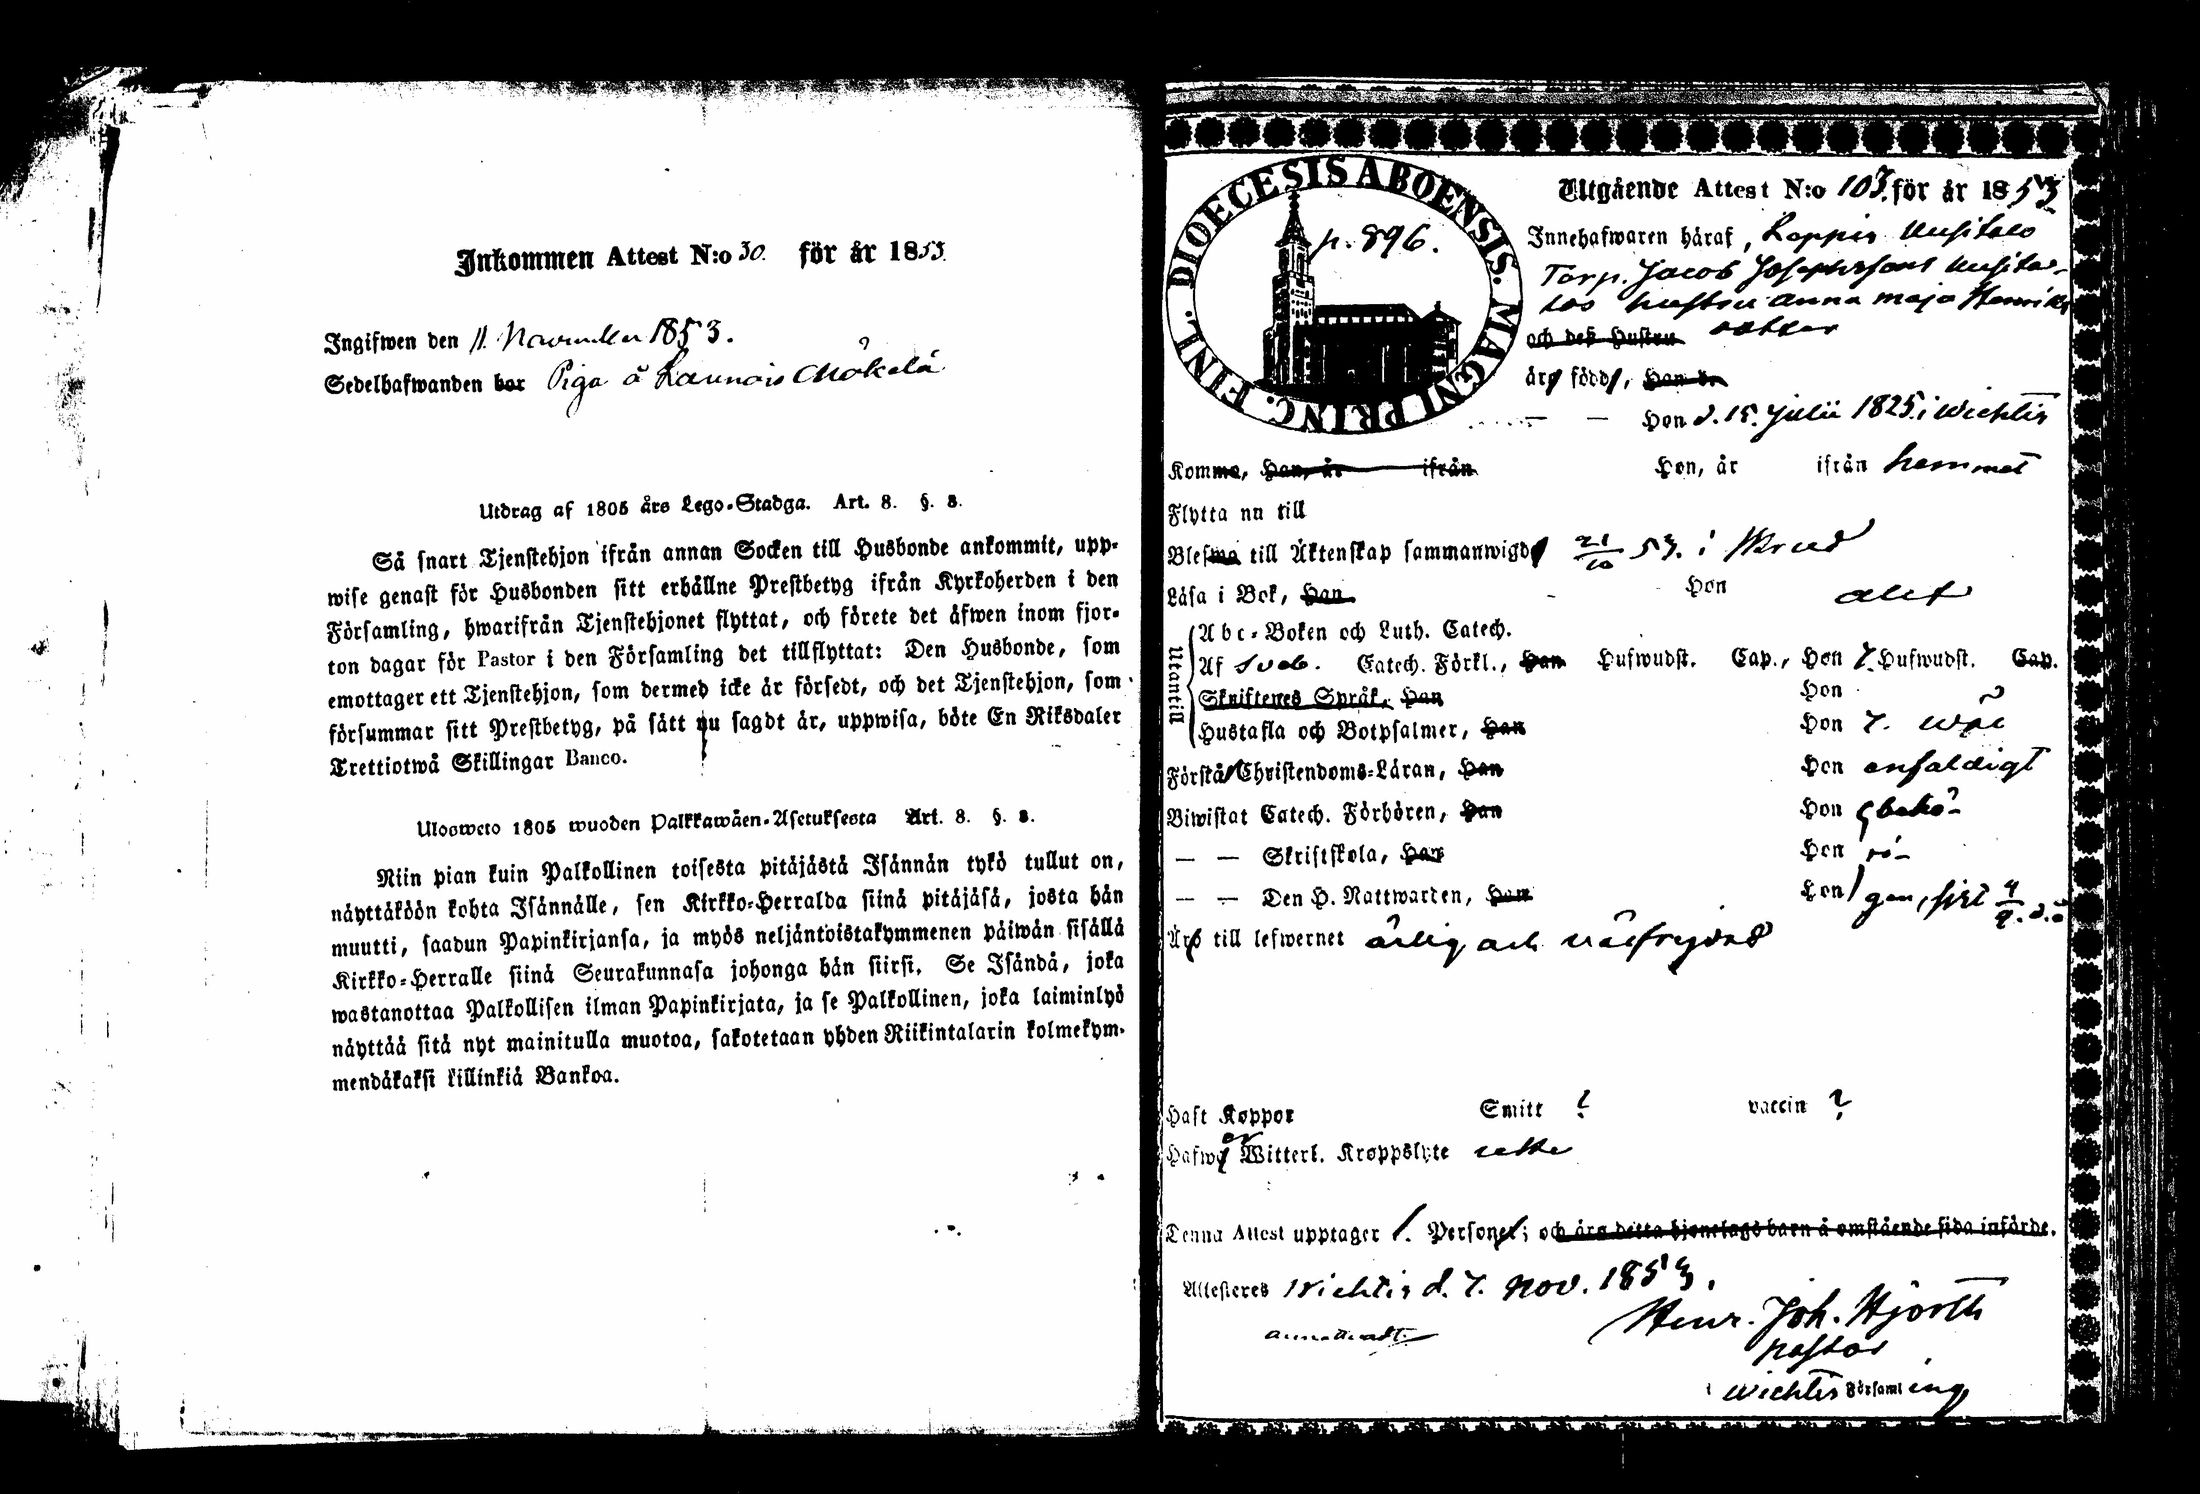 Inkommen Attest N:o 30. för år 1853.
Ingifwen den 11 November 1853.
Sedelhafwanden bor Piga å Mökelä
Utdrag af 1805 års Lego-Stadga. Art. 8. §. 3.
Så snart Tjenstehjon ifrån annan Socken till Husbonde ankommit, upp-
wise genast för Husbonden sitt erhållne Prestbetyg ifrån Kyrkoherden i den
Församling, hwarifrån Tjenstehjonet flyttat, och förete det äfwen inom fjor-
ton dagar för Pastor i den Församling det tillflyttat: Den Husbonde, som
emottager ett Tjenstehjon, som dermed icke är försedt, och det Tjenstehjon, som
försummar sitt Prestbetyg, på sätt nu sagdt är, uppwisa, böte En Riksdaler
Trettiotwå Skillingar Banco.
Ulosweto 1805 wuoden Palkkawäen-Asetuksesta Art. 8. §. 3.
Niin pian kuin Palkollinen toisesta pitäjästä Isännän tykö tullut on,
näyttäköön kohta Isännälle, sen Kirkko-Herralda siinä pitäjäsä, josta hän
muutti, saadun Papinkirjansa, ja myös neljäntoistakymmenen päiwän sisällä
Kirkko-Herralle siinä Seurakunnasa johonga hän siirsi. Se Isändä, joka
wastanottaa Palkollisen ilman Papinkirjata, ja se Palkollinen, joka laiminlyö
näyttää sitä nyt mainitulla muotoa, sakotetaan yhden Riikintalarin kolmekym-
mendäkaksi killinkiä Bankoa.
DIOECESIS ABOENSIS. MAGNI PRINC. FINL.
p. 896.
Utgående Attest N:o 103. för år 1853
Innehafwaren häraf, Loppis Uusitalo
Torp. Jacob Josephssons Uusita-
los hustru Anna Maja Henriks
och deß Hustru dotter
äro födde, Han d.
— — Hon d. 15. Julii 1825. i Wichtis
Komma, Han, år ifrån Hon, år ifrån hemmet
Flytta nu till
Blefwo till Äktenskap sammanwigde 21/10 53. i
Läsa i Bok, Han - Hon
Utantill
Abc-Boken och Luth. Catech.
Af Sveb. Catech. Förkl., Han Hufwudst. Cap., Hon 7. Hufwudst. Cap.
Skriftenes Språk, Han Hon
Hustafla och Botpsalmer, Han Hon 7. wäl
Förstå Christendoms-Läran, Han Hon enfaldigt
Biwistat Catech. Förhören, Han Hon behö-
— — Skriftskola, Han Hon ri-
— — Den H. Nattwarden, Han Hon gen, sist 4/9. d. å
Äro till lefwernet ärlig och wälfrejdad
Haft Koppor Smitt ? vaccin ?
Hafwa Witterl. Kroppslyte
Denna Attest upptager 1. Personer; och äro detta hjonelags barn å omstående sida införde.
Attesteres Wichtis d. 7. Nov. 1853.
Henr. Joh. Hjorth
pastor
i Wichtis Församling